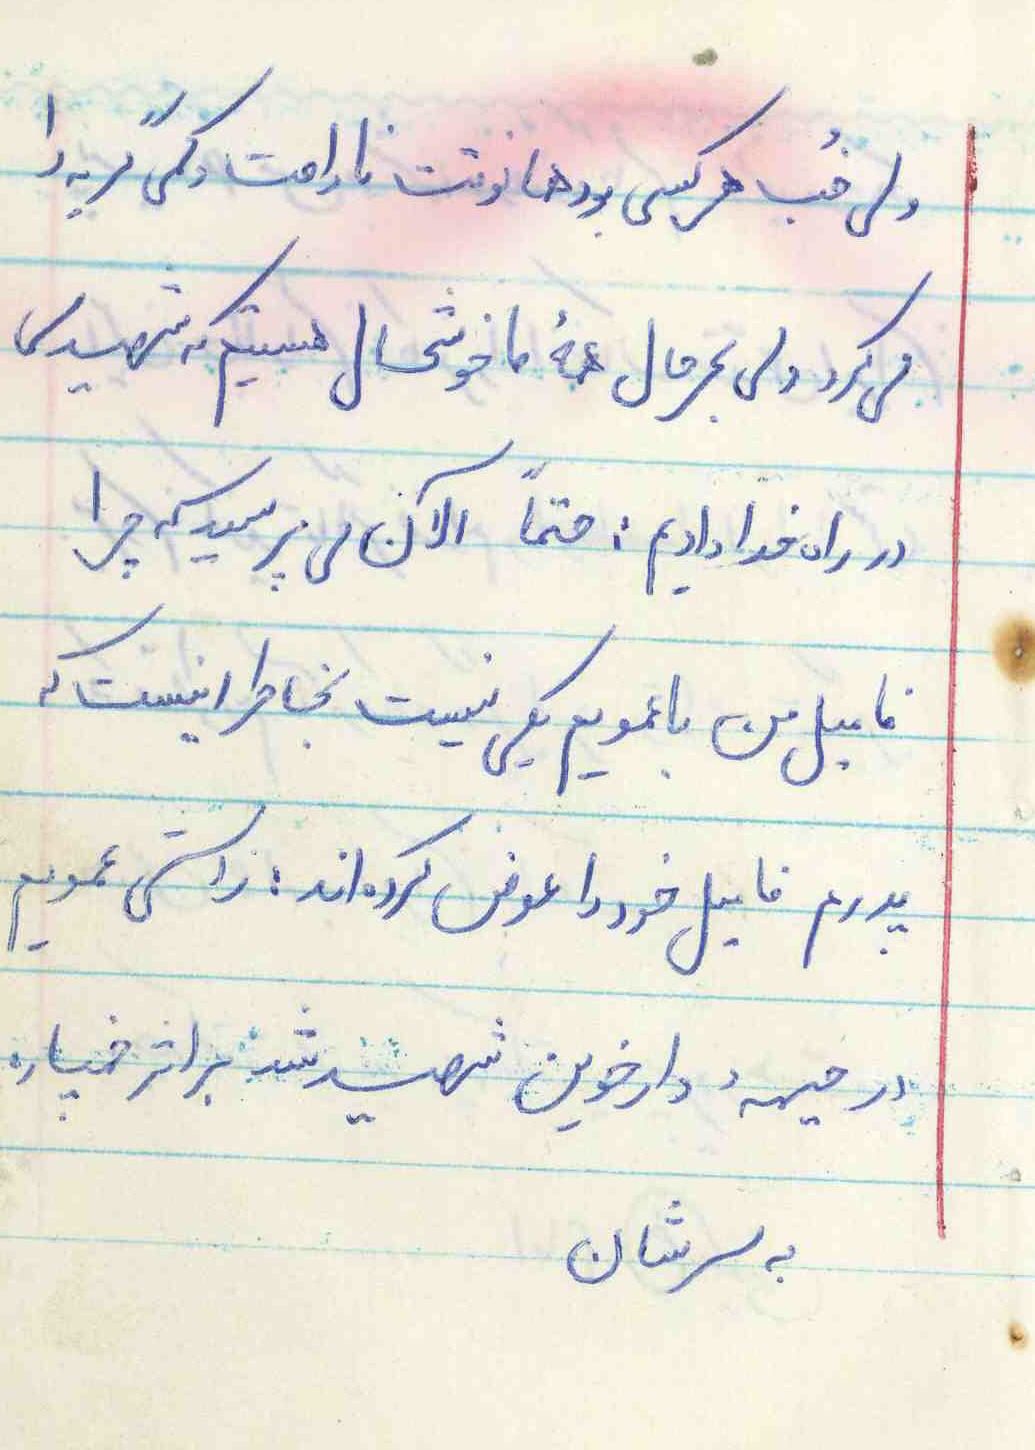 ولی خُب هر کسی بود همانوقت ناراحت و کمی گریه را
می‌کرد ولی بهرحال همهٔ ما خوشحال هستیم که شهیدی
در راه خدا دادیم؛ حتماً الآن می‌پرسید که چرا
فامیل من با عمویم یکی نیست بخاطر اینست که
پدرم فامیل خود را عوض کرده‌اند؛ راستی عمویم
در جبههء دارخوین شهید شد بر اثر خمپاره
به سرشان